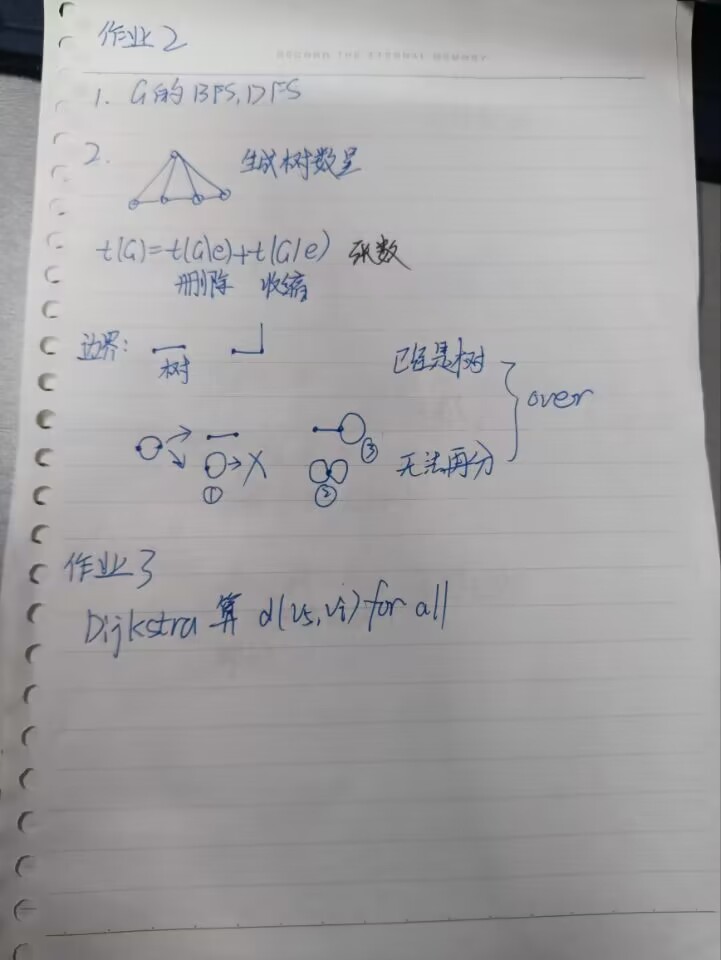 作业2
RECORD THE ETERNAL MEMORY
1. G的BFS,DFS
2. 生成树数量
t(G)=t(G\e)+t(G/e)
删除 收缩
边界: 树 已经是树
over
① ② ③ 无法再分
作业3
Dijkstra 算 d(v5,vi) for all